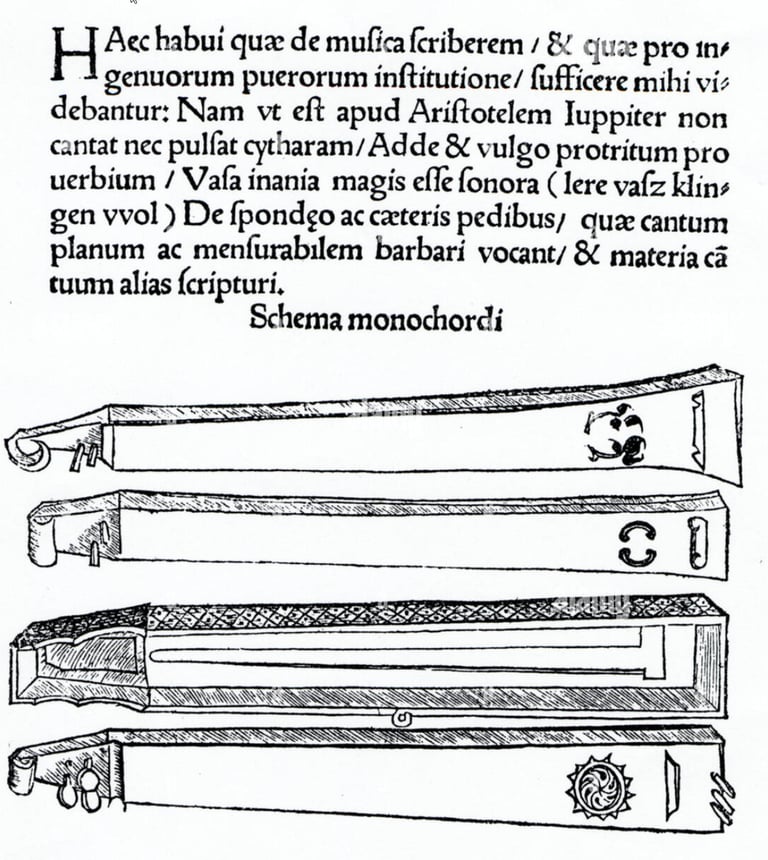 HAec habui quæ de muſica ſcriberem / & quæ pro in⸗
genuorum puerorum inſtitutione/ ſufficere mihi vi⸗
debantur: Nam vt eſt apud Ariſtotelem Iuppiter non
cantat nec pulſat cytharam/ Adde & vulgo protritum pro
uerbium / Vaſa inania magis eſſe ſonora ( lere vaſz klin⸗
gen vvol ) De ſpondęo ac cæteris pedibus/ quæ cantum
planum ac menſurabilem barbari vocant/ & materia cã
tuum alias ſcripturi.
Schema monochordi
alamy